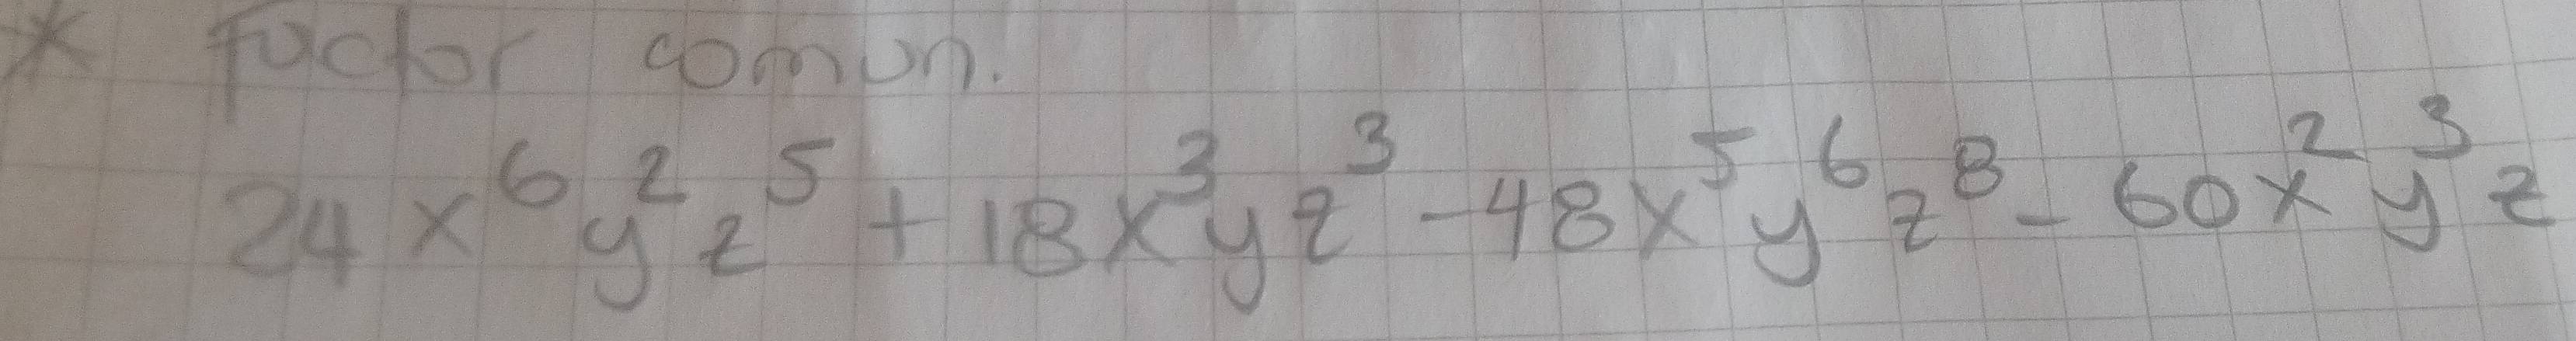 * Factor comun.
24x⁶y²z⁵ + 18x³yz³ - 48x⁵y⁶z⁸ - 60x²y³z